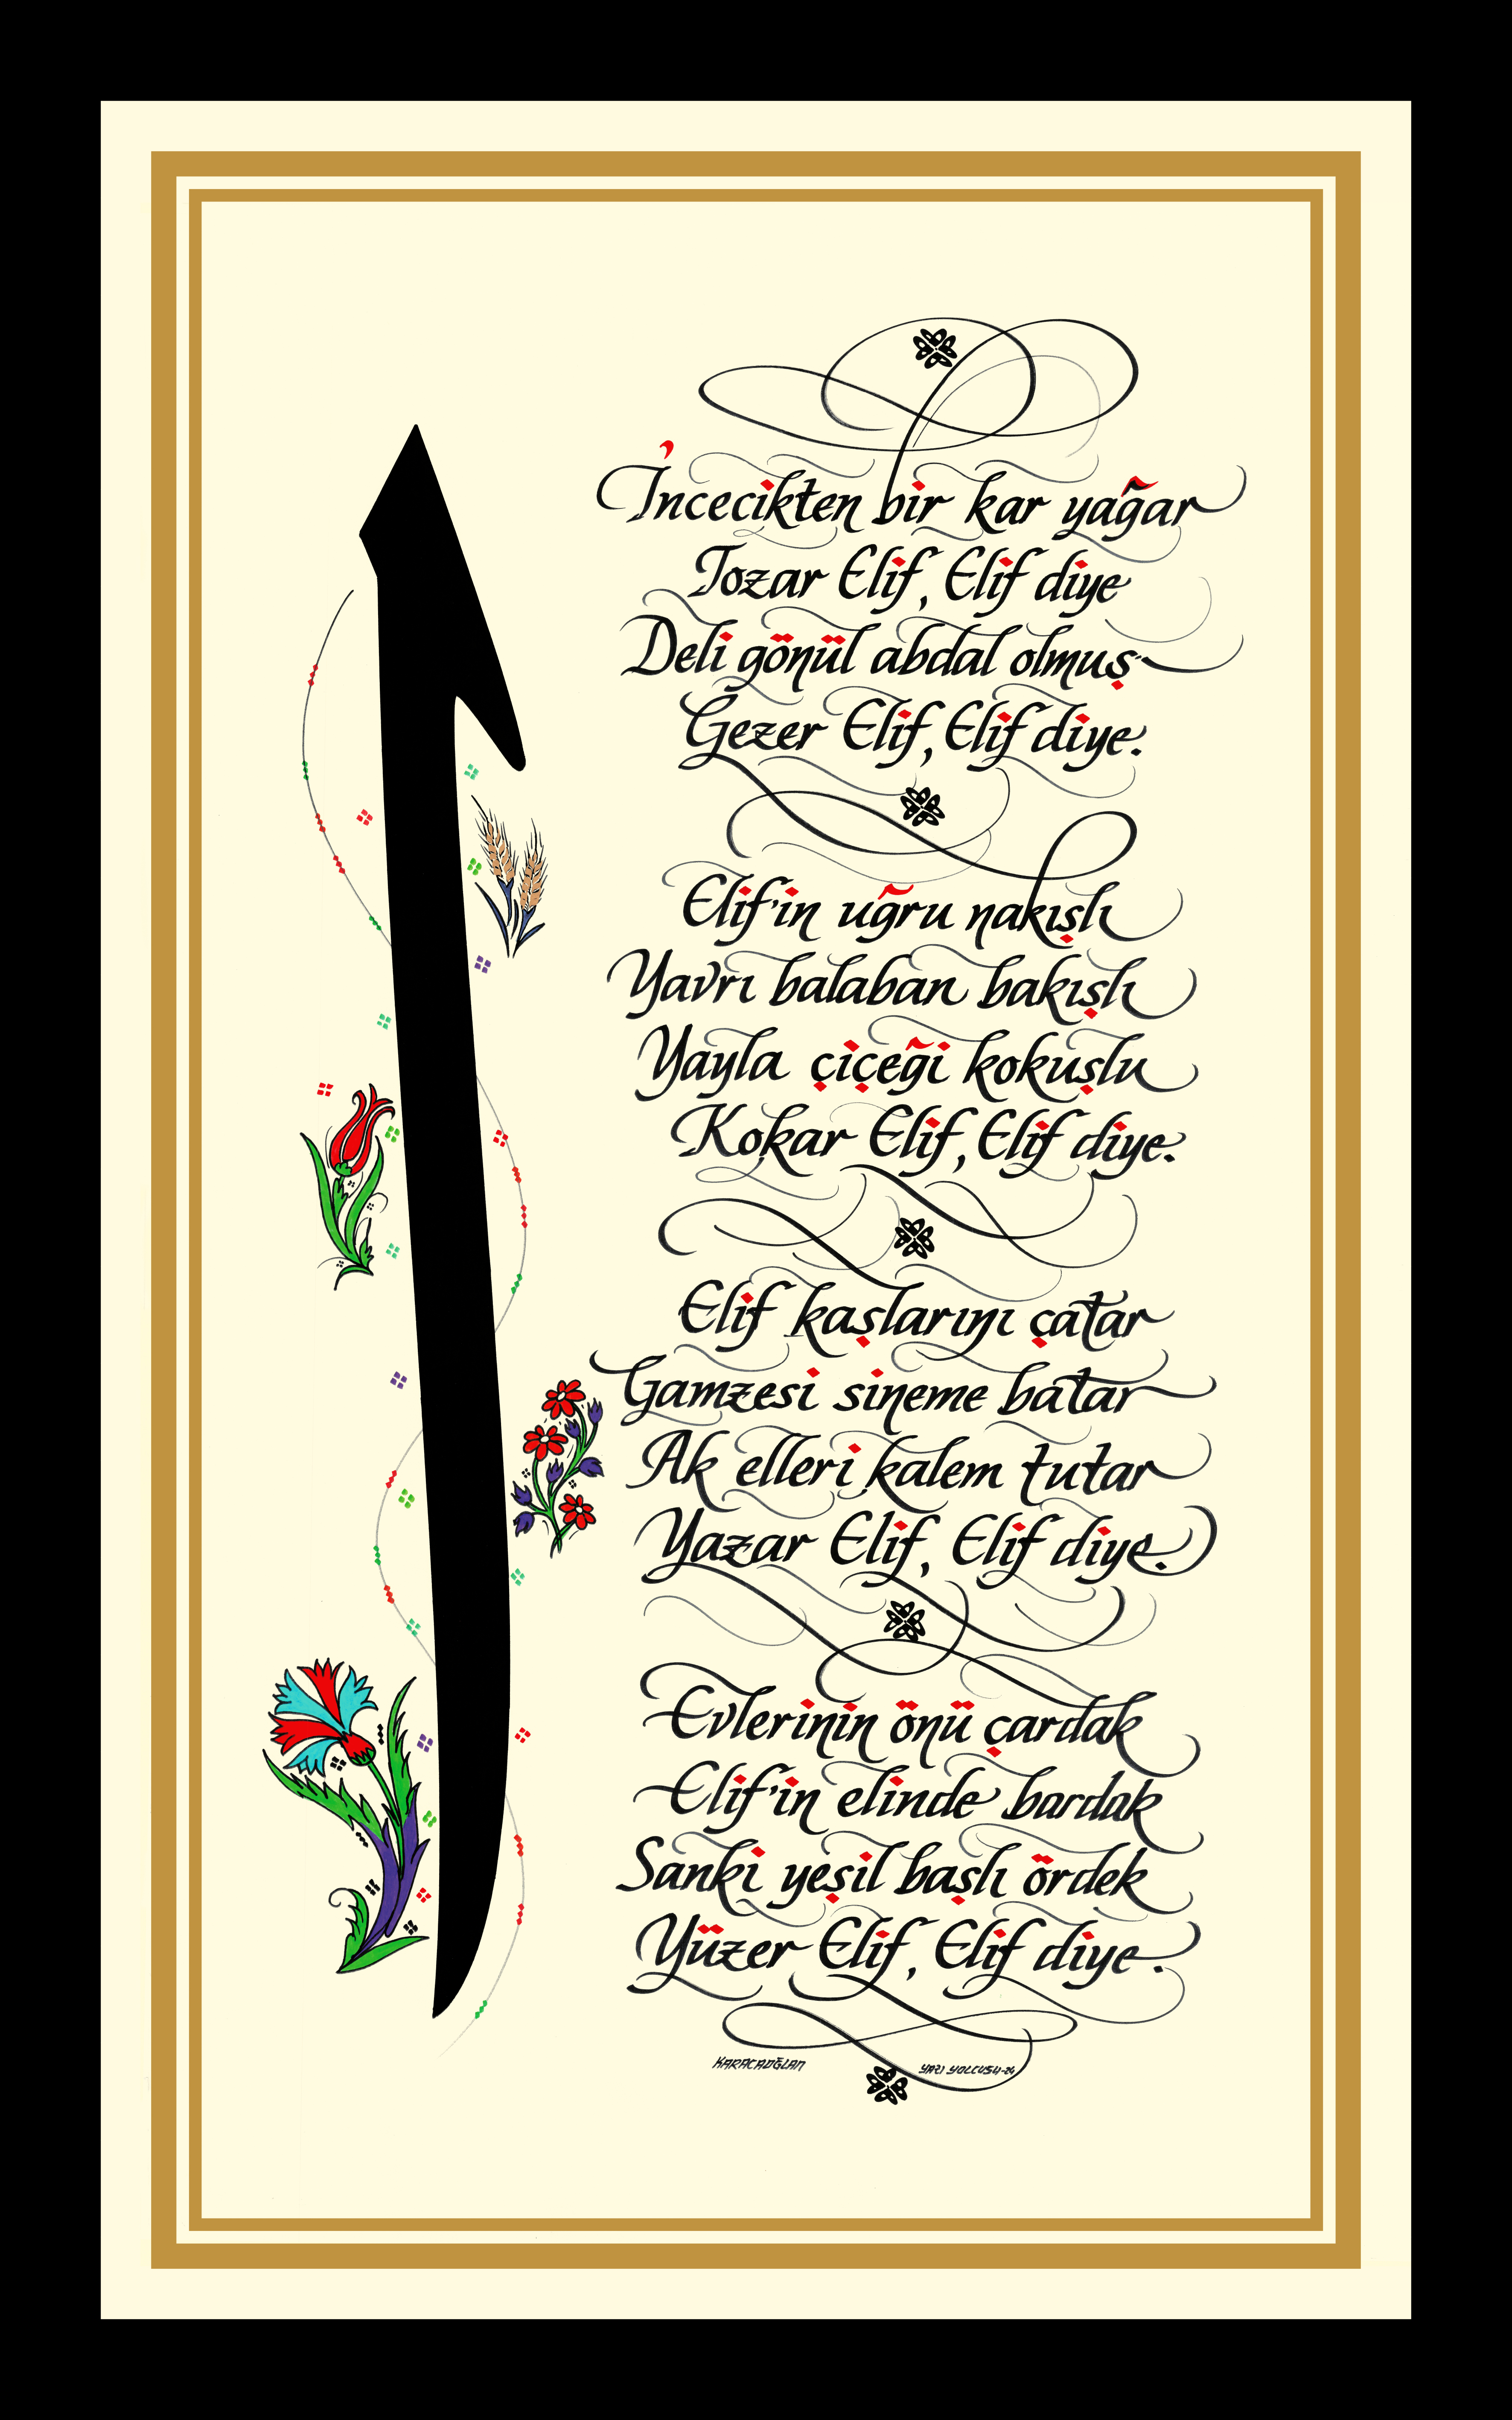 ا
İncecikten bir kar yağar
Tozar Elif, Elif diye
Deli gönül abdal olmuş
Gezer Elif, Elif diye.
Elif'in uğru nakışlı
Yavrı balaban bakışlı
Yayla çiçeği kokuşlu
Kokar Elif, Elif diye.
Elif kaşlarını çatar
Gamzesi sineme batar
Ak elleri kalem tutar
Yazar Elif, Elif diye.
Evlerinin önü çardak
Elif'in elinde bardak
Sanki yeşil başlı ördek
Yüzer Elif, Elif diye.
KARACAOĞLAN
YAZI YOLCUSU-24